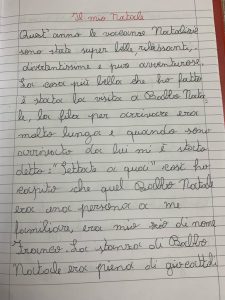 Il mio Natale
Quest'anno le vacanze Natalizie
sono state super belle, rilassanti,
divertentissime e pure avventurose.
La cosa più bella che ho fatto
è stata la visita a Babbo Nata
le, la fila per arrivare era
molto lunga e quando sono
arrivato da lui mi è stato
detto: "Iettati a quoi" così ho
capito che quel Babbo Natale
era una persona a me
familiare, era mio zio di nome
Franco. La stanza di Babbo
Natale era piena di giocattoli